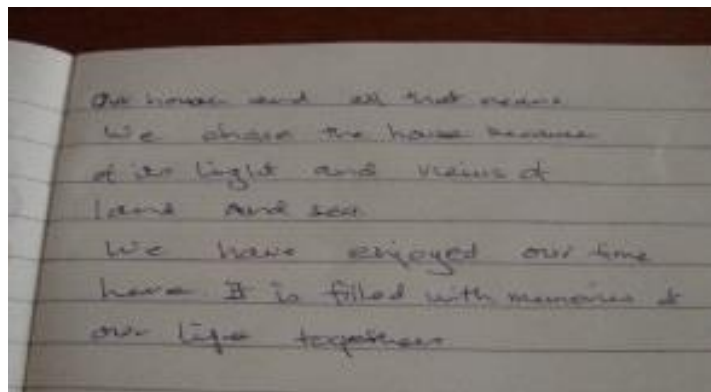 Our house and all that means
We chose the house because
of its light and views of
land and sea
We have enjoyed our time
here It is filled with memories of
our life together